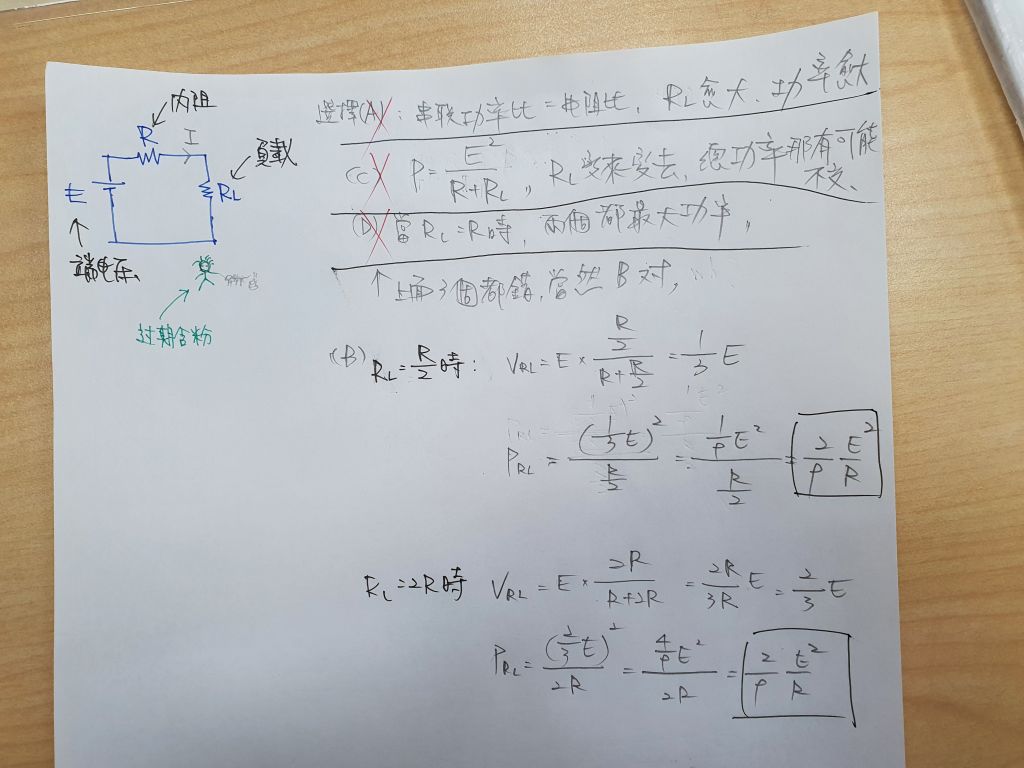 內阻
R
I
E
RL
負載
端电压
过期合粉
選擇(A) : 串联功率比 = 电阻比, RL愈大、功率愈大
(C) P = E²/(R+RL), RL变來变去, 總功率那有可能不变、
(D) 當RL=R時, 兩個都最大功率,
↑ 上面3個都錯, 當然B对,
(B) RL = R/2 時: VRL = E × (R/2)/(R+R/2) = 1/3 E
PRL = (1/3 E)²/(R/2) = (1/9 E²)/(R/2) = 2/9 E²/R
RL = 2R時 VRL = E × 2R/(R+2R) = 2R/3R E = 2/3 E
PRL = (2/3 E)²/2R = (4/9 E²)/2R = 2/9 E²/R